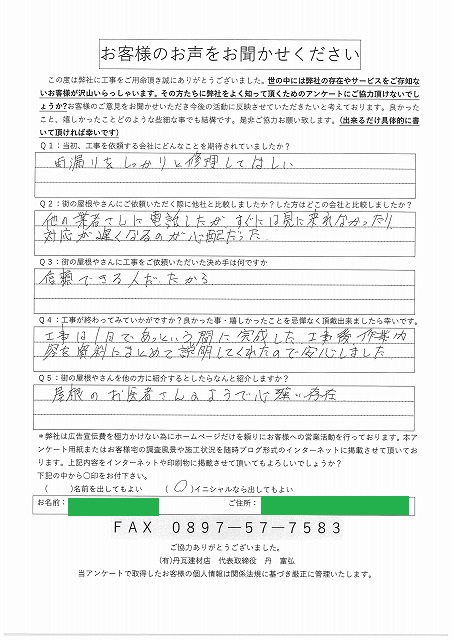 お客様のお声をお聞かせください
この度は弊社に工事をご用命頂き誠にありがとうございました。世の中には弊社の存在やサービスをご存知な
いお客様が沢山いらっしゃいます。その方たちに弊社をよく知って頂くためのアンケートにご協力頂けないでし
ょうか?お客様のご意見をお聞かせいただき今後の活動に反映させていただきたいと考えております。良かった
こと、嬉しかったことどのような些細な事でも結構です。是非ご協力お願い致します。(出来るだけ具体的に書
いて頂ければ幸いです)
Q1:当初、工事を依頼する会社にどんなことを期待されていましたか?
雨漏りをしっかりと修理してほしい
Q2:街の屋根やさんにご依頼いただく際に他社と比較しましたか?した方はどこの会社と比較しましたか?
他の業者さんに電話したが、すぐには見に来れなかったり
対応が遅くなるのが心配だった
Q3:街の屋根やさんに工事をご依頼いただいた決め手は何ですか
信頼できる人だったから
Q4:工事が終わってみていかがですか?良かった事・嬉しかったことを忌憚なく頂戴出来ましたら幸いです。
工事は1日であっという間に完成した。工事後、作業内
容を資料にまとめて説明してくれたので安心しました
Q5:街の屋根やさんを他の方に紹介するとしたらなんと紹介しますか?
屋根のお医者さんのようで心強い存在
*弊社は広告宣伝費を極力かけない為にホームページだけを頼りにお客様への営業活動を行っております。本ア
ンケート用紙またはお客様宅の調査風景や施工状況を随時ブログ形式のインターネットに掲載させて頂いてお
ります。上記内容をインターネットや印刷物に掲載させて頂いてもよろしいでしょうか?
下記の中から〇印をお付下さい。
( )名前を出してもよい (〇)イニシャルなら出してもよい
お名前: ご住所:
FAX 0897-57-7583
ご協力ありがとうございました。
(有)丹瓦建材店 代表取締役 丹 富弘
当アンケートで取得したお客様の個人情報は関係法規に基づき厳正に管理いたします。